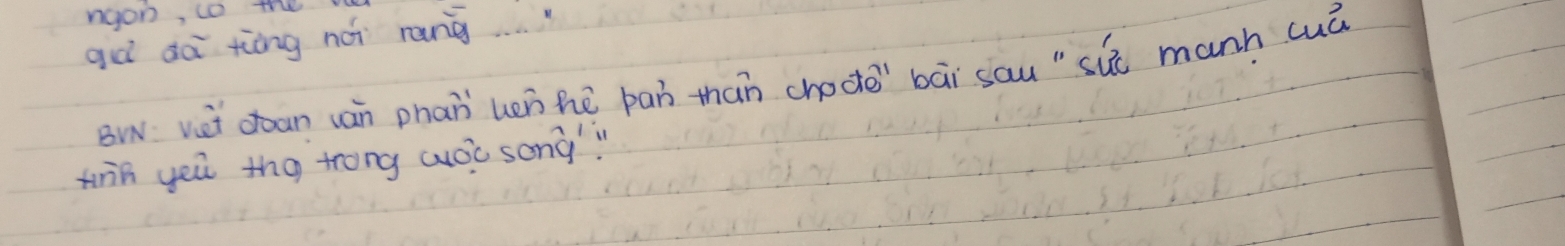 ngon, có thể
giả đã từng nói rằng ...."
BVN: viết đoạn văn phần liên hệ bản thân cho đề bài sau "sức mạnh của
tình yêu thg trong cuộc sống".